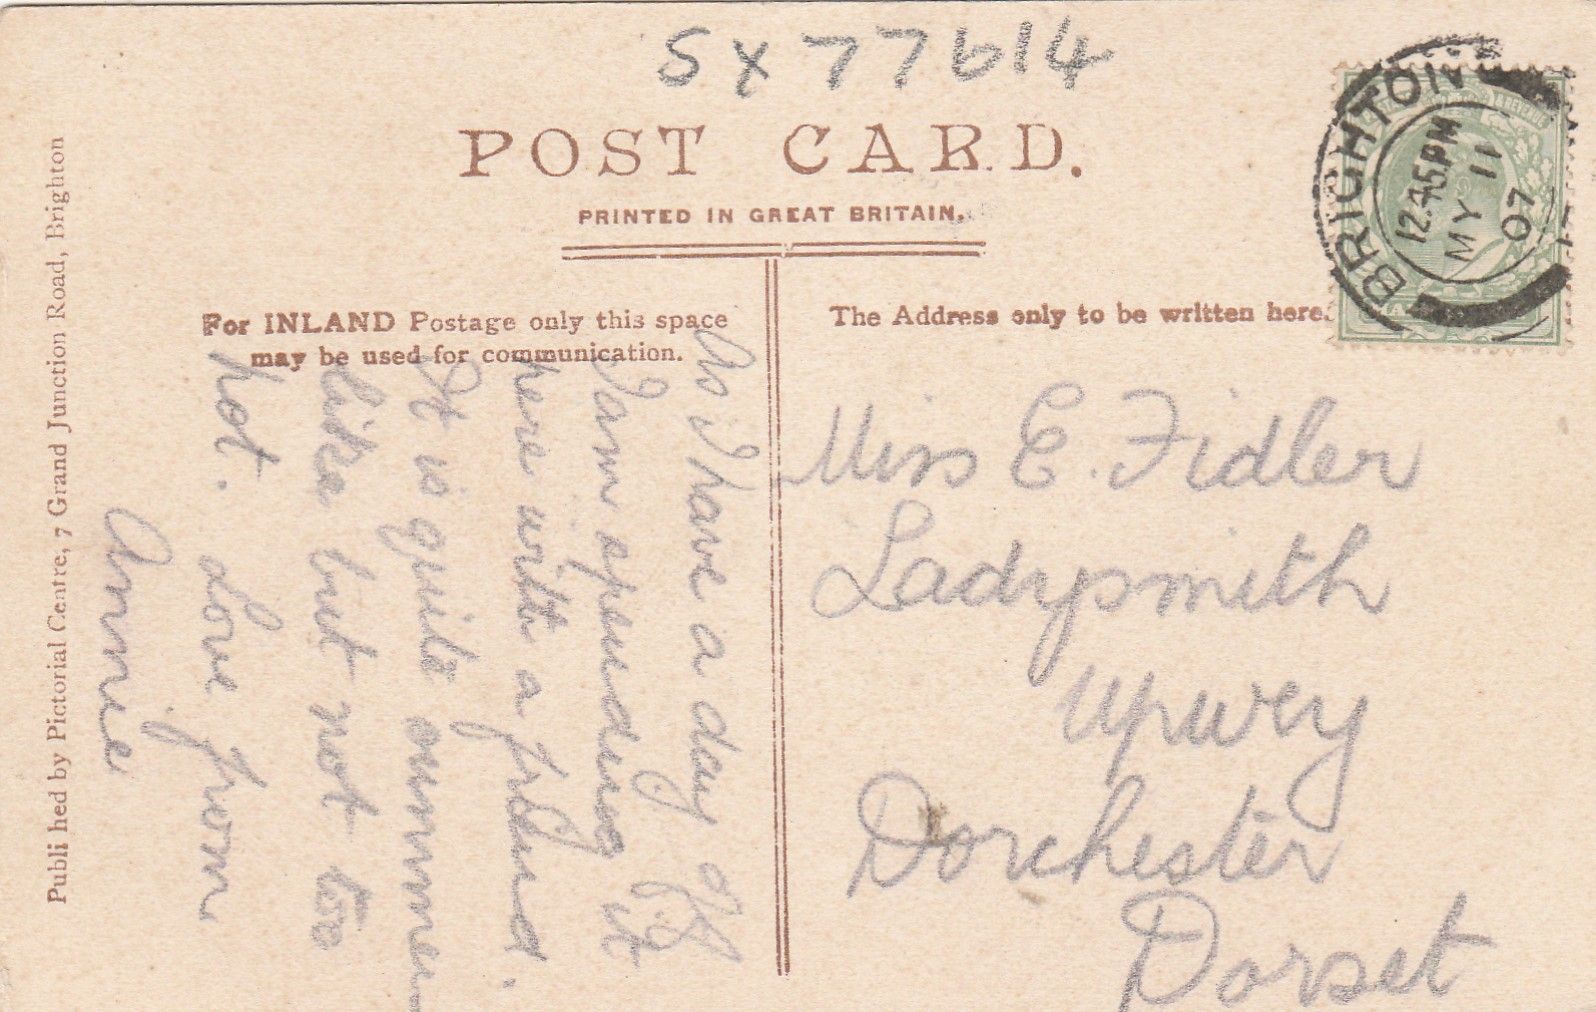 SX 77614
POST CARD.
PRINTED IN GREAT BRITAIN.
For INLAND Postage only this space
may be used for communication.
The Address only to be written here.
BRIGHTON
12.45PM
MY 11
07
REVENUE
As I have a day off
I am spending it
here with a friend.
It is quite summer
like but not too
hot. Love from
Annie
Miss E. Fidler
Ladysmith
Upwey
Dorchester
Dorset
Publi hed by Pictorial Centre, 7 Grand Junction Road, Brighton